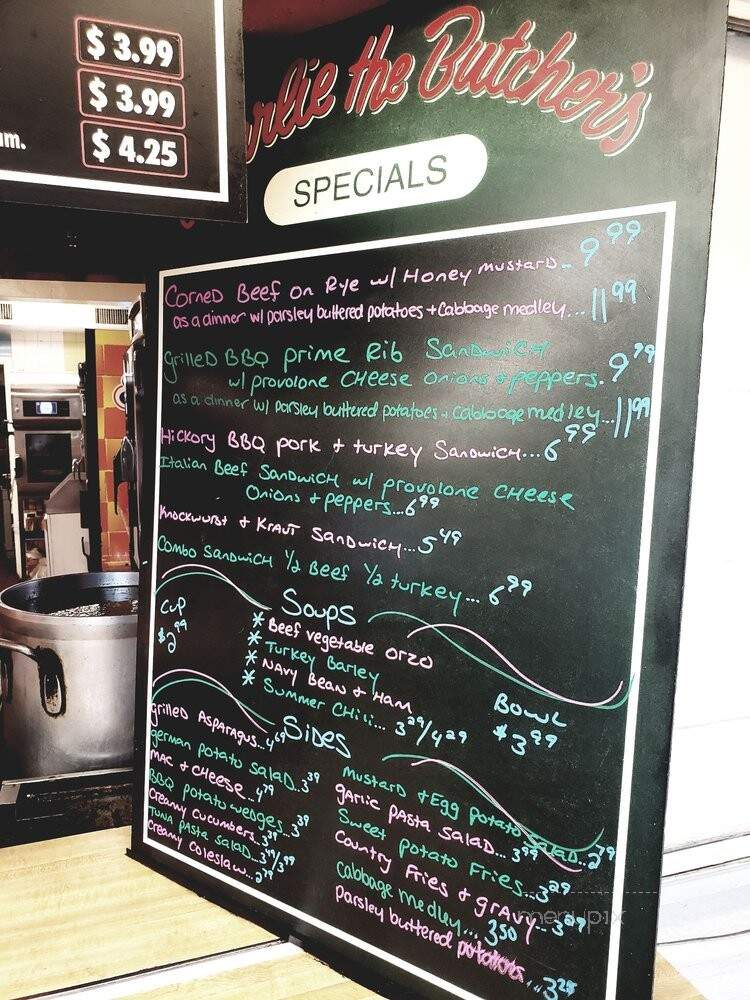 $ 3.99
$ 3.99
$ 4.25
um.
rlie the Butcher's
SPECIALS
Corned Beef on Rye w/ Honey mustard.. 9 99
as a dinner w/ parsley buttered potatoes + cabbage medley... 11 99
Grilled BBQ prime Rib Sandwich
w/ provolone CHeese onions + peppers. 9 99
as a dinner w/ parsley buttered potatoes + cabbage medley... 11 99
Hickory BBQ pork + turkey Sandwich... 6 99
Italian Beef Sandwich w/ provolone CHeese
Onions + peppers... 6 99
Knockwurst + Kraut Sandwich... 5 49
Combo Sandwich 1/2 Beef 1/2 turkey... 6 99
Soups
Cup
$2 99
* Beef vegetable orzo
* Turkey Barley
* Navy Bean + Ham
* Summer CHili... 3 29/4 29
Bowl
$3 99
Sides
Grilled Asparagus... 4 69
german potato salad.. 3 39
Mac + CHeese.. 4 79
BBQ potato wedges.. 3 39
Creamy cucumbers. 3 39
Tuna pasta salad...
Creamy Coleslaw... 2 79
Mustard + Egg potato Salad.. 2 79
garlic pasta salad... 3 99
Sweet potato Fries... 3 29
Country Fries + gravy..
cabbage medley... 3 50
Parsley buttered potatoes ..
menupix